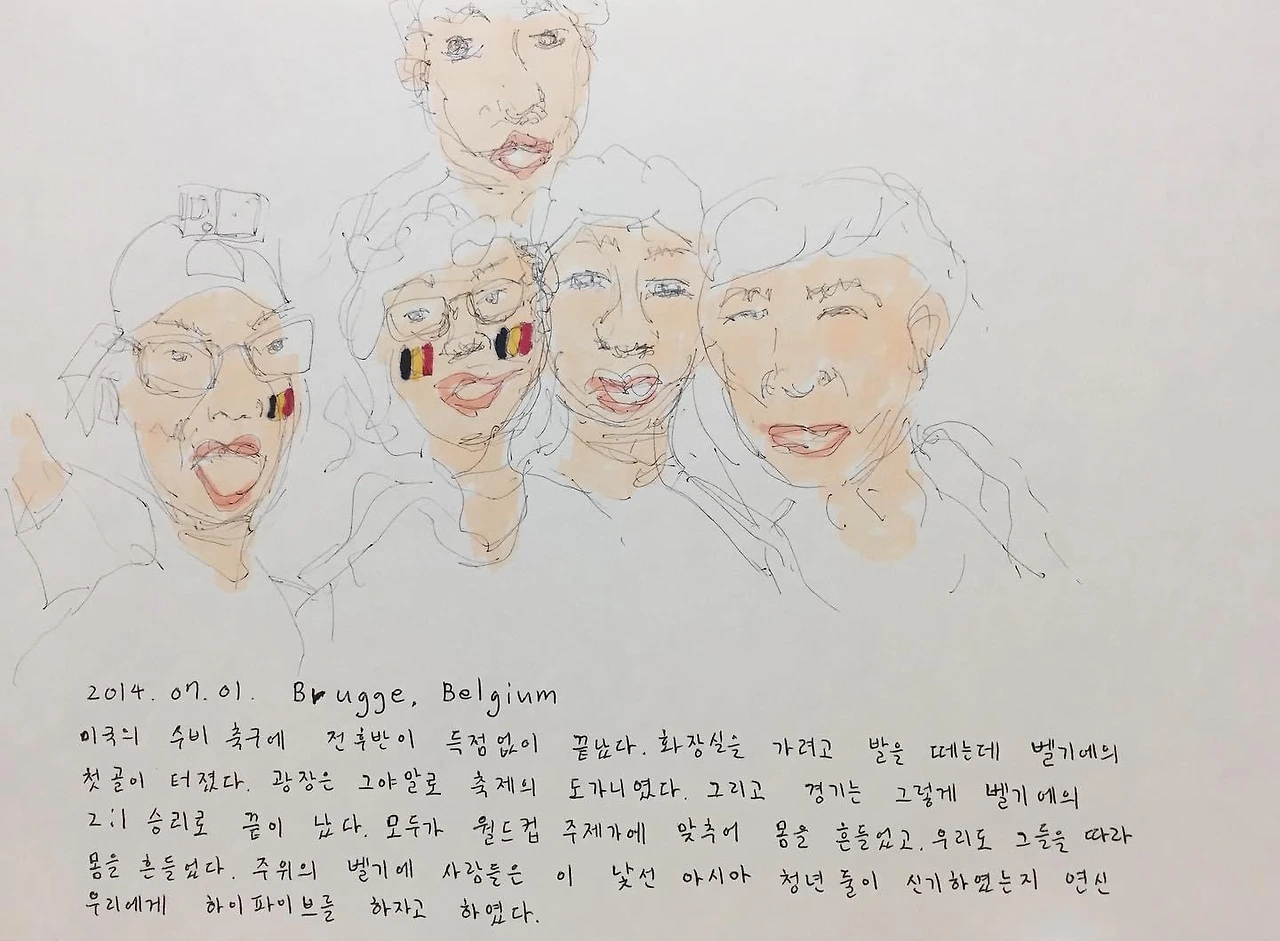 2014. 07. 01. Brugge, Belgium
미국의 수비 축구에 전후반이 득점없이 끝났다. 화장실을 가려고 발을 떼는데 벨기에의
첫 골이 터졌다. 광장은 그야말로 축제의 도가니였다. 그리고 경기는 그렇게 벨기에의
2:1 승리로 끝이 났다. 모두가 월드컵 주제가에 맞추어 몸을 흔들었고, 우리도 그들을 따라
몸을 흔들었다. 주위의 벨기에 사람들은 이 낯선 아시아 청년 둘이 신기하였는지 연신
우리에게 하이파이브를 하자고 하였다.